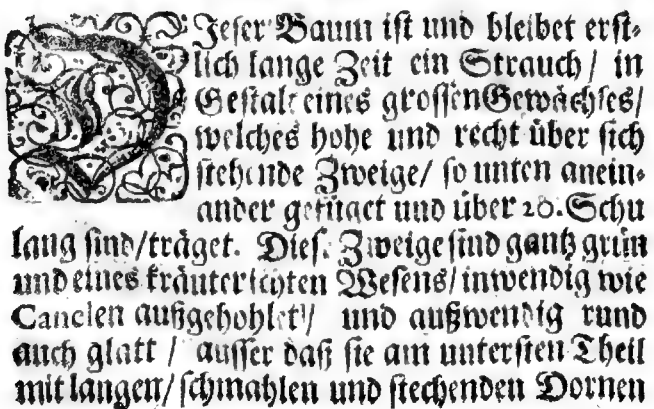 DJeser Baum ist und bleibet erst-
lich lange Zeit ein Strauch / in
Gestalt eines grossen Gewächses /
welches hohe und recht über sich
stehende Zweige / so unten anein-
ander gefüget und über 20. Schu
lang sind / träget. Diese Zweige sind gantz grün
und eines kräuterichten Wesens / inwendig wie
Canelen außgehohlet / und außwendig rund
auch glatt / ausser daß sie am untersten Theil
mit langen / schmahlen und stechenden Dornen